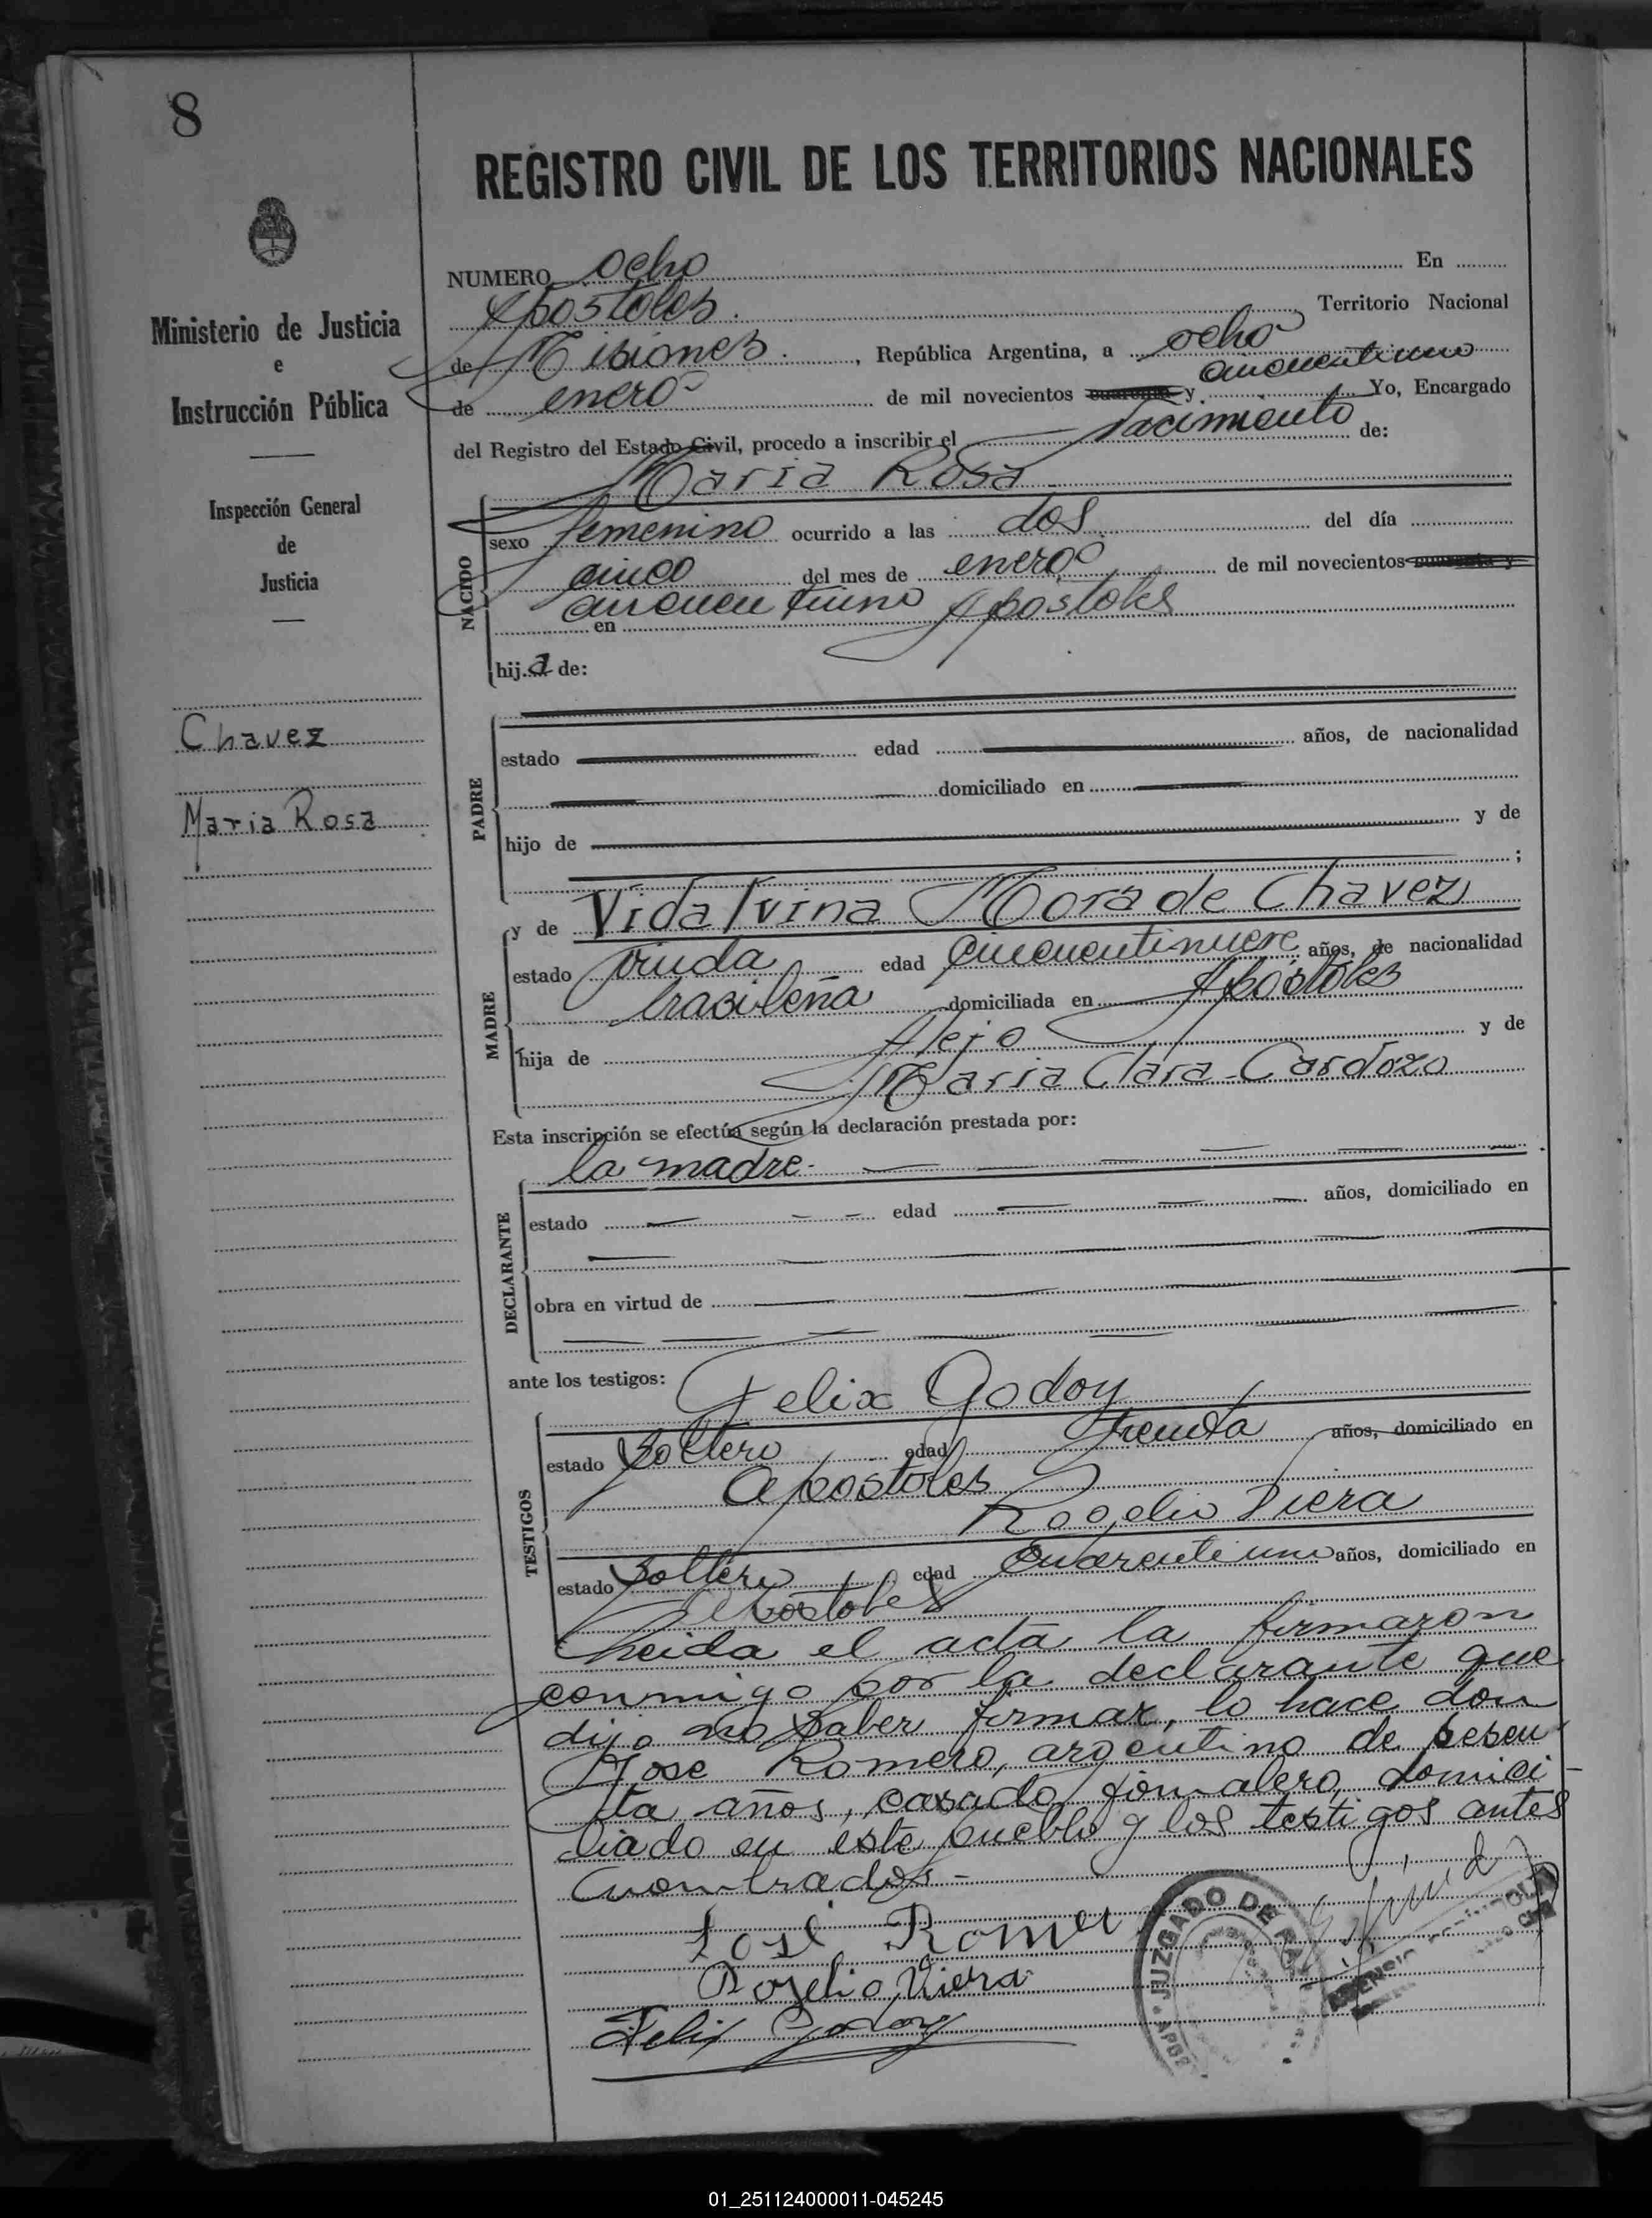 8
REGISTRO CIVIL DE LOS TERRITORIOS NACIONALES
Ministerio de Justicia
e
Instrucción Pública
Inspección General
de
Justicia
Chavez
Maria Rosa
NUMERO ocho En
Apostoles. Territorio Nacional
de Misiones., República Argentina, a ocho
de enero de mil novecientos cuarenta y cincuentiuno Yo, Encargado
del Registro del Estado Civil, procedo a inscribir el Nacimiento de:
Maria Rosa
NACIDO
sexo femenino ocurrido a las dos del día
cinco del mes de enero de mil novecientos cuarenta y
cincuentiuno en Apostoles
hij.a de:
PADRE
estado edad años, de nacionalidad
domiciliado en
hijo de y de
;
MADRE
y de Vidalvina Mora de Chavez
estado viuda edad cincuentinueve años, de nacionalidad
brasileña domiciliada en Apostoles
hija de Alejo y de
Maria Clara Cardozo
Esta inscripción se efectúa según la declaración prestada por:
la madre.
DECLARANTE
estado edad años, domiciliado en
obra en virtud de
ante los testigos:
Felix Godoy
TESTIGOS
estado Soltero edad Treinta años, domiciliado en
Apostoles
Rogelio Viera
estado Soltero edad Cuarentiuno años, domiciliado en
Apostoles
Leida el acta la firmaron
conmigo por la declarante que
dijo no saber firmar, lo hace don
Jose Romero, argentino de sesen
ta años, casado, jornalero, domici-
liado en este pueblo y los testigos antes
nombrados-
José Romer
Rogelio Viera
Felix Godoy
JUZGADO DE PAZ
01_251124000011-045245